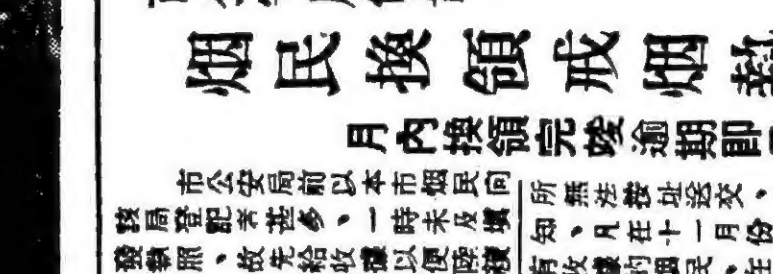 烟民換領戒烟執
月內換領完竣逾期即
市公安局前以本市烟民向
該局登記者甚多、一時未及填
發執照、故先給收據以便陸續
所無法按址送交、
知、凡在十一月份
有收據的烟民、在